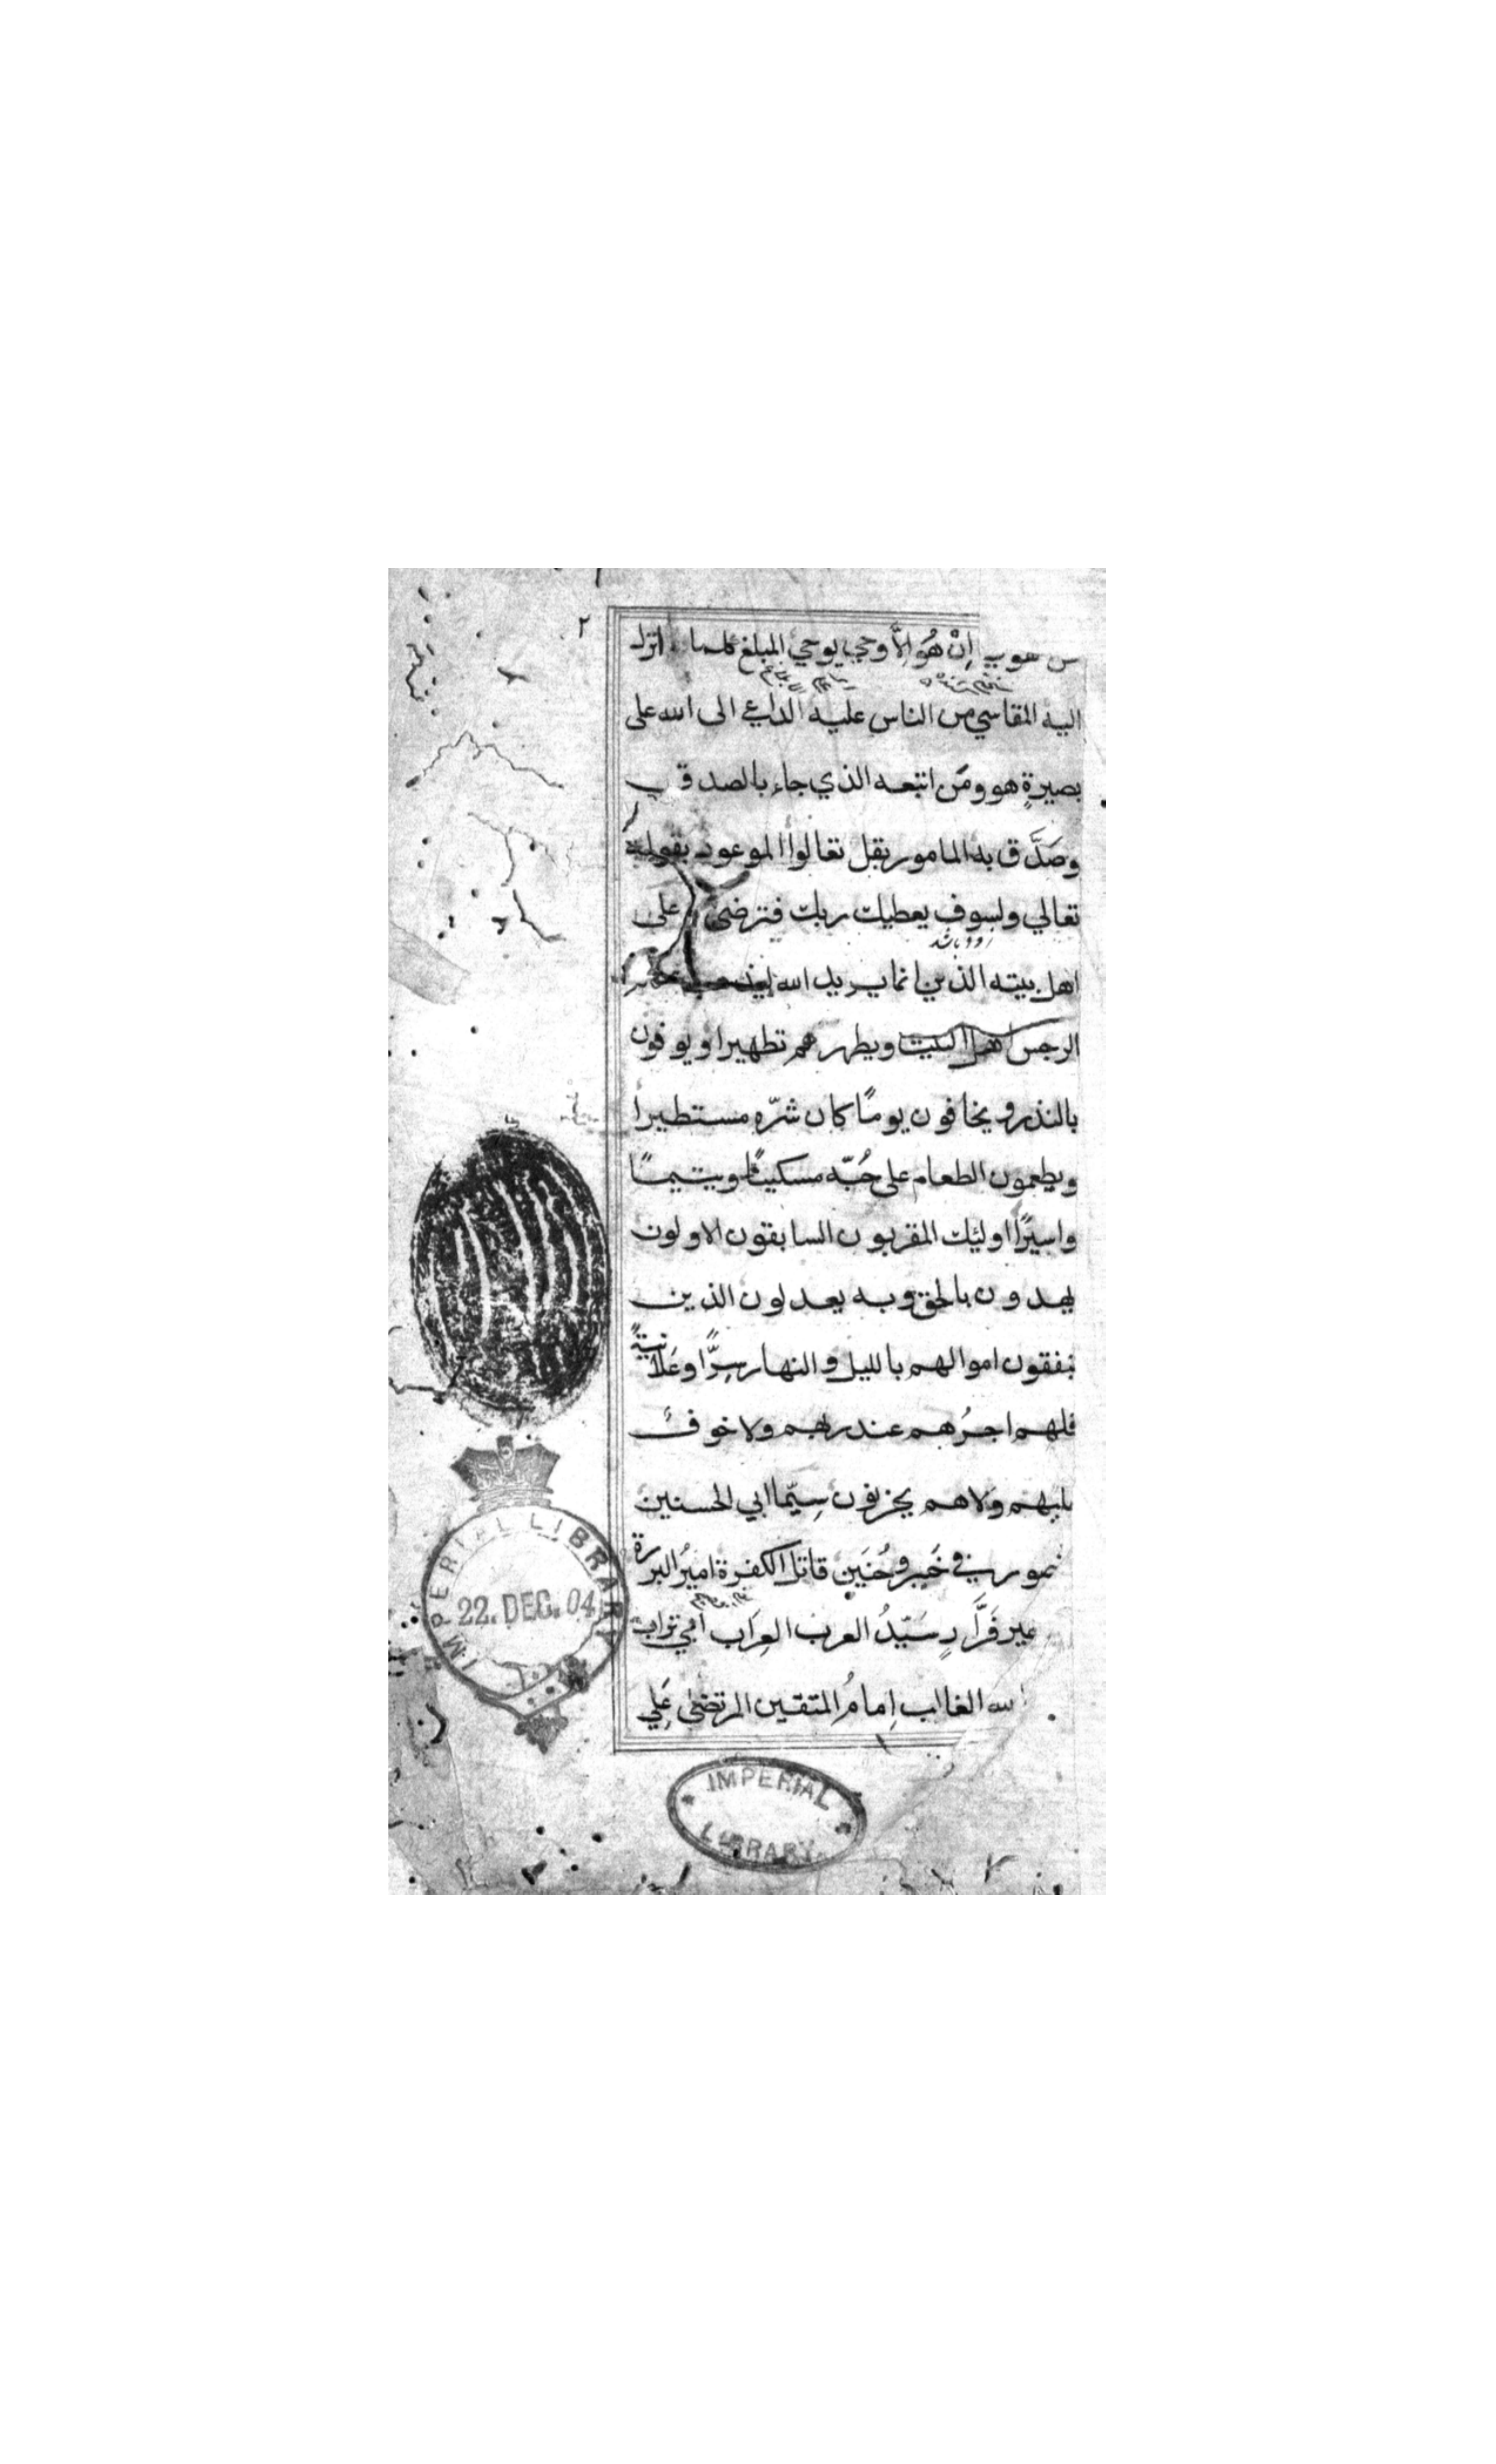 ٢
هوي اِنْ هُوَ اِلاَّ وحي يوحي المبلغ كلما انزل
اليه المقاسي من الناس عليه الداعي الى الله على
بصيرةٍ هو ومَن اتبعه الذي جاء بالصدق
وصَدَّق به المامور بقل تعالوا الموعود بقوله
تعالي ولسوف يعطيك ربك فترضى على
اهل بيته الذين انما يريد الله ليذهب عنهم
الرجس اهل البيت ويطهرهم تطهيرا ويوفون
بالنذر ويخافون يومًا كان شرّه مستطيرا
ويطعمون الطعام على حُبّه مسكينًا ويتيمًا
واسيرًا اوليك المقربون السابقون الاولون
يهدون بالحق وبه يعدلون الذين
ينفقون اموالهم بالليل والنهار سِرًّا وعَلَانيةً
فلهم اجرُهم عند ربهم ولا خوف
عليهم ولا هم يحزنون سِيّما ابي الحسنين
في خَيبر وحُنَين قاتل الكفرة اميرُ البررة
غير فَرَّارٍ سَيّدُ العرب العِرَاب ابي تراب
الله الغالب اِمامُ المتقين المرتضى عَلِي
IMPERIAL LIBRARY
22. DEC. 04
IMPERIAL
LIBRARY